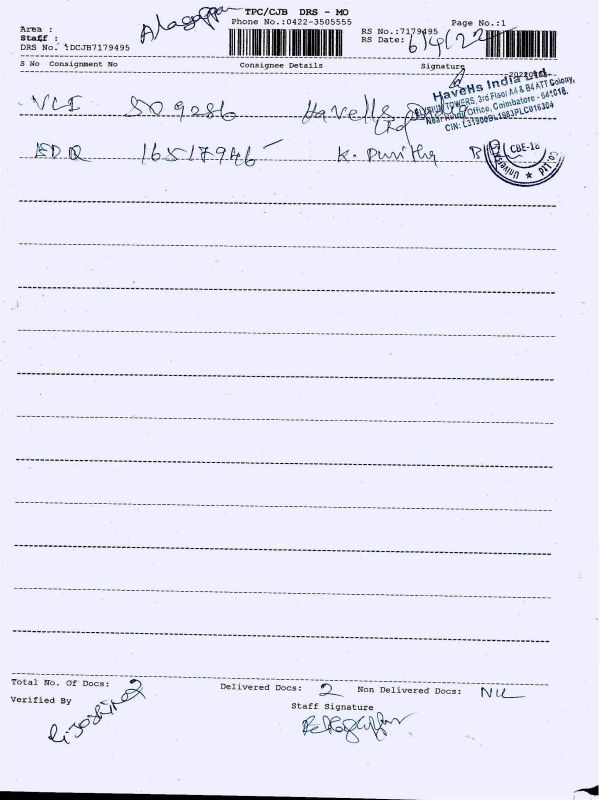 Alagappan TPC/CJB DRS - MO
Phone No.:0422-3505555 Page No.:1
Area :
Staff :
RS No.:7179495
DRS No. :DCJB7179495
RS Date: 6/4/22
S No Consignment No Consignee Details Signature
Havells India Ltd.
TOWERS, 3rd Floor A4 & B4 ATT Colony,
Office, Coimbatore - 641018.
VLI 509286 Havells India
Ltd
EDQ 16517946 K. Punitha B
CBE-18
Total No. Of Docs: 2 Delivered Docs: 2 Non Delivered Docs: NIL
Verified By
Staff Signature